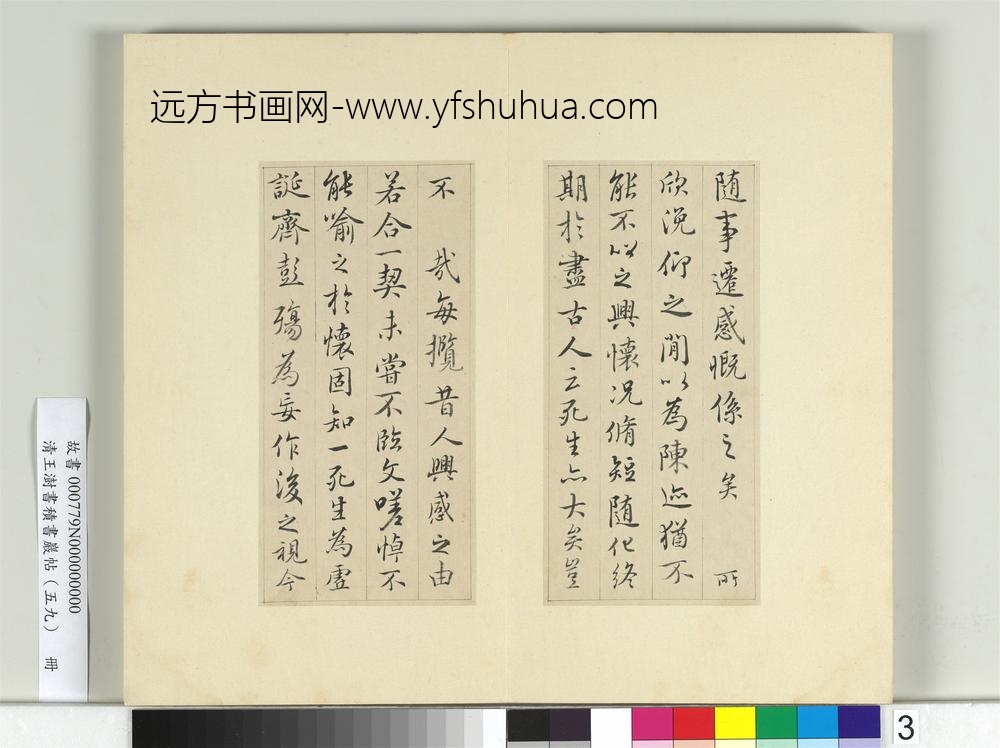 远方书画网-www.yfshuhua.com
随事遷感慨係之矣 所
欣俛仰之閒以為陳迹猶不
能不以之興懷況脩短随化終
期於盡古人云死生亦大矣豈
不 哉每攬昔人興感之由
若合一契未嘗不臨文嗟悼不
能喻之於懷固知一死生為虛
誕齊彭殤為妄作後之視今
故書 000779N000000000
清王澍書積書巖帖(五九) 冊
3